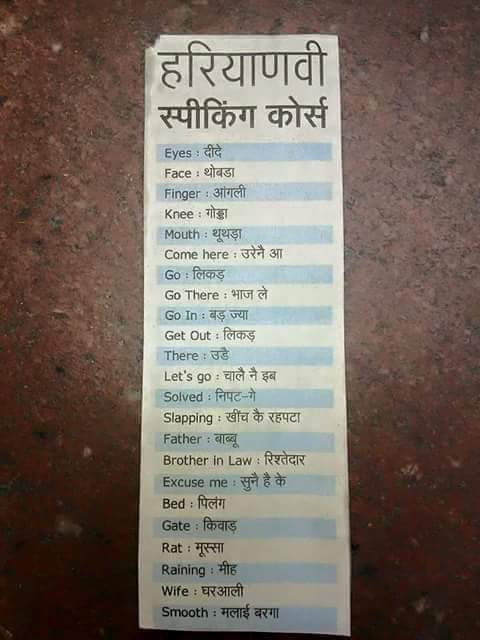 हरियाणवी
स्पीकिंग कोर्स
Eyes : दीदे
Face : थोबडा
Finger : आंगली
Knee : गोड्डा
Mouth : थूथड़ा
Come here : उरेनै आ
Go : लिकड़
Go There : भाज ले
Go In : बड़ ज्या
Get Out : लिकड़
There : उडै
Let's go : चालै नै इब
Solved : निपट-गे
Slapping : खींच कै रहपटा
Father : बाब्बू
Brother in Law : रिश्तेदार
Excuse me : सुनै है के
Bed : पिलंग
Gate : किवाड़
Rat : मूस्सा
Raining : मीह
Wife : घरआली
Smooth : मलाई बरगा